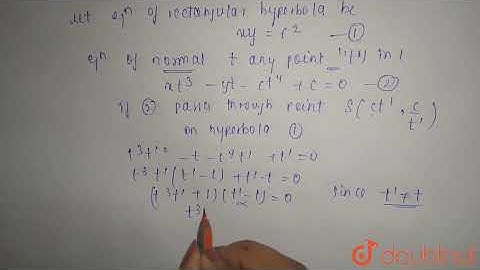 Let eqn of rectangular hyperbola be
xy = c² —①
eqn of normal t any point "t") in 1
xt³ - yt - ct⁴ + c = 0 —②
if ② pass through point S(ct', c/t')
on hyperbola ①
t³t'² - t - t⁴t' + t' = 0
t³t'(t'-t) + t'-t = 0
(t³t' + 1)(t'-t) = 0 since t' ≠ t
t³
doubtnut